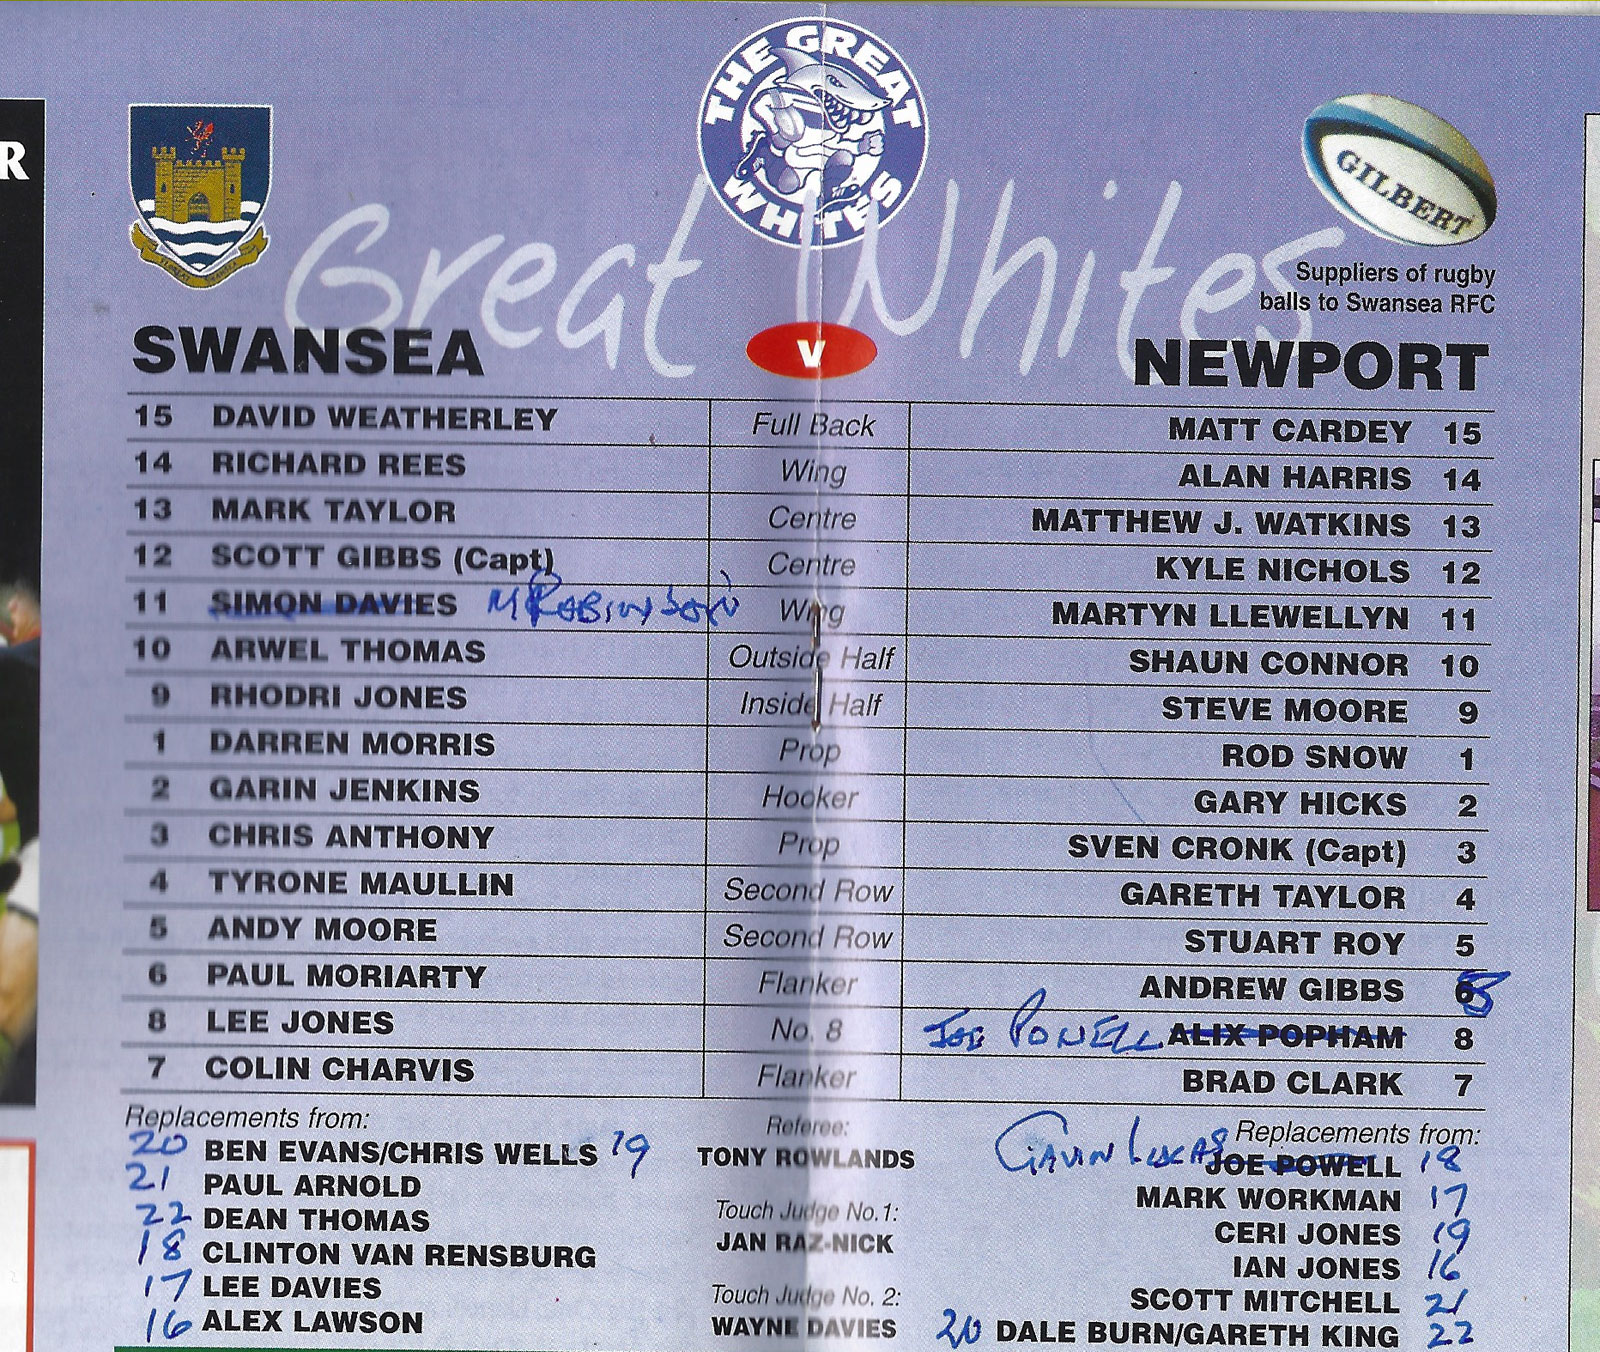 THE GREAT WHITES
R
GILBERT
Great Whites
Suppliers of rugby
balls to Swansea RFC
SWANSEA v NEWPORT
15 DAVID WEATHERLEY Full Back MATT CARDEY 15
14 RICHARD REES Wing ALAN HARRIS 14
13 MARK TAYLOR Centre MATTHEW J. WATKINS 13
12 SCOTT GIBBS (Capt) Centre KYLE NICHOLS 12
11 SIMON DAVIES M ROBINSON Wing MARTYN LLEWELLYN 11
10 ARWEL THOMAS Outside Half SHAUN CONNOR 10
9 RHODRI JONES Inside Half STEVE MOORE 9
1 DARREN MORRIS Prop ROD SNOW 1
2 GARIN JENKINS Hooker GARY HICKS 2
3 CHRIS ANTHONY Prop SVEN CRONK (Capt) 3
4 TYRONE MAULLIN Second Row GARETH TAYLOR 4
5 ANDY MOORE Second Row STUART ROY 5
6 PAUL MORIARTY Flanker ANDREW GIBBS 6
8 LEE JONES No. 8 JOE POWELL ALIX POPHAM 8
7 COLIN CHARVIS Flanker BRAD CLARK 7
Replacements from: Referee: Replacements from:
20 BEN EVANS/CHRIS WELLS 19 TONY ROWLANDS GAVIN LUCAS JOE POWELL 18
21 PAUL ARNOLD MARK WORKMAN 17
22 DEAN THOMAS Touch Judge No.1: CERI JONES 19
18 CLINTON VAN RENSBURG JAN RAZ-NICK IAN JONES 16
17 LEE DAVIES Touch Judge No. 2: SCOTT MITCHELL 21
16 ALEX LAWSON WAYNE DAVIES 20 DALE BURN/GARETH KING 22